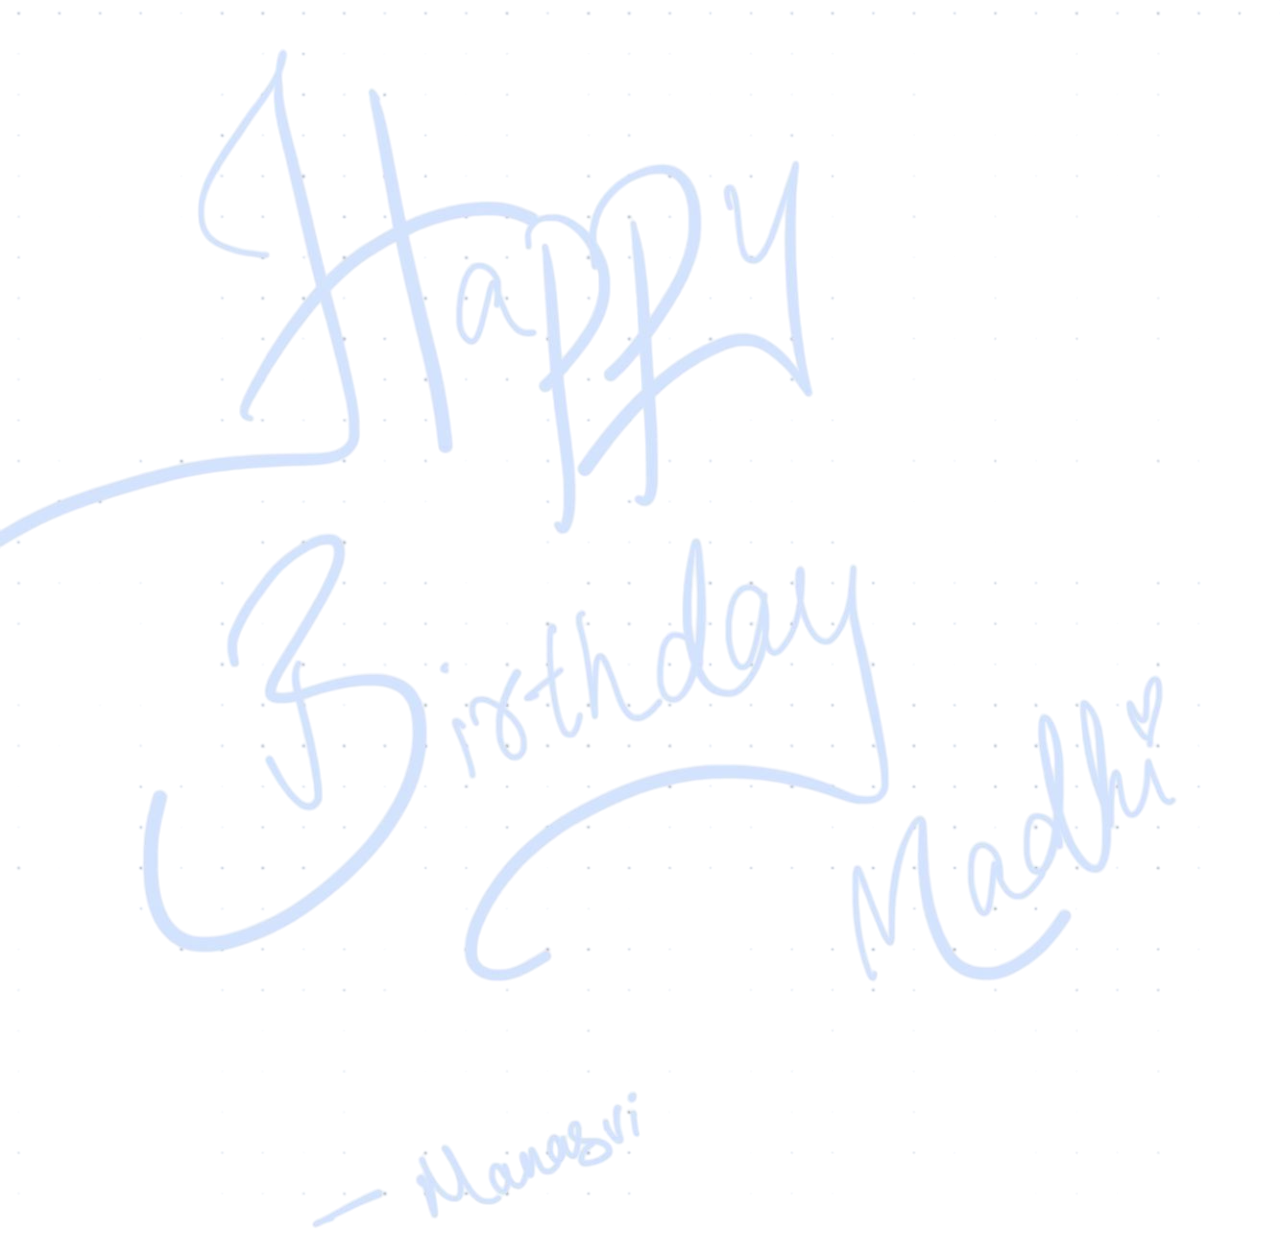 Happy
Birthday
Madhi
— Manasvi